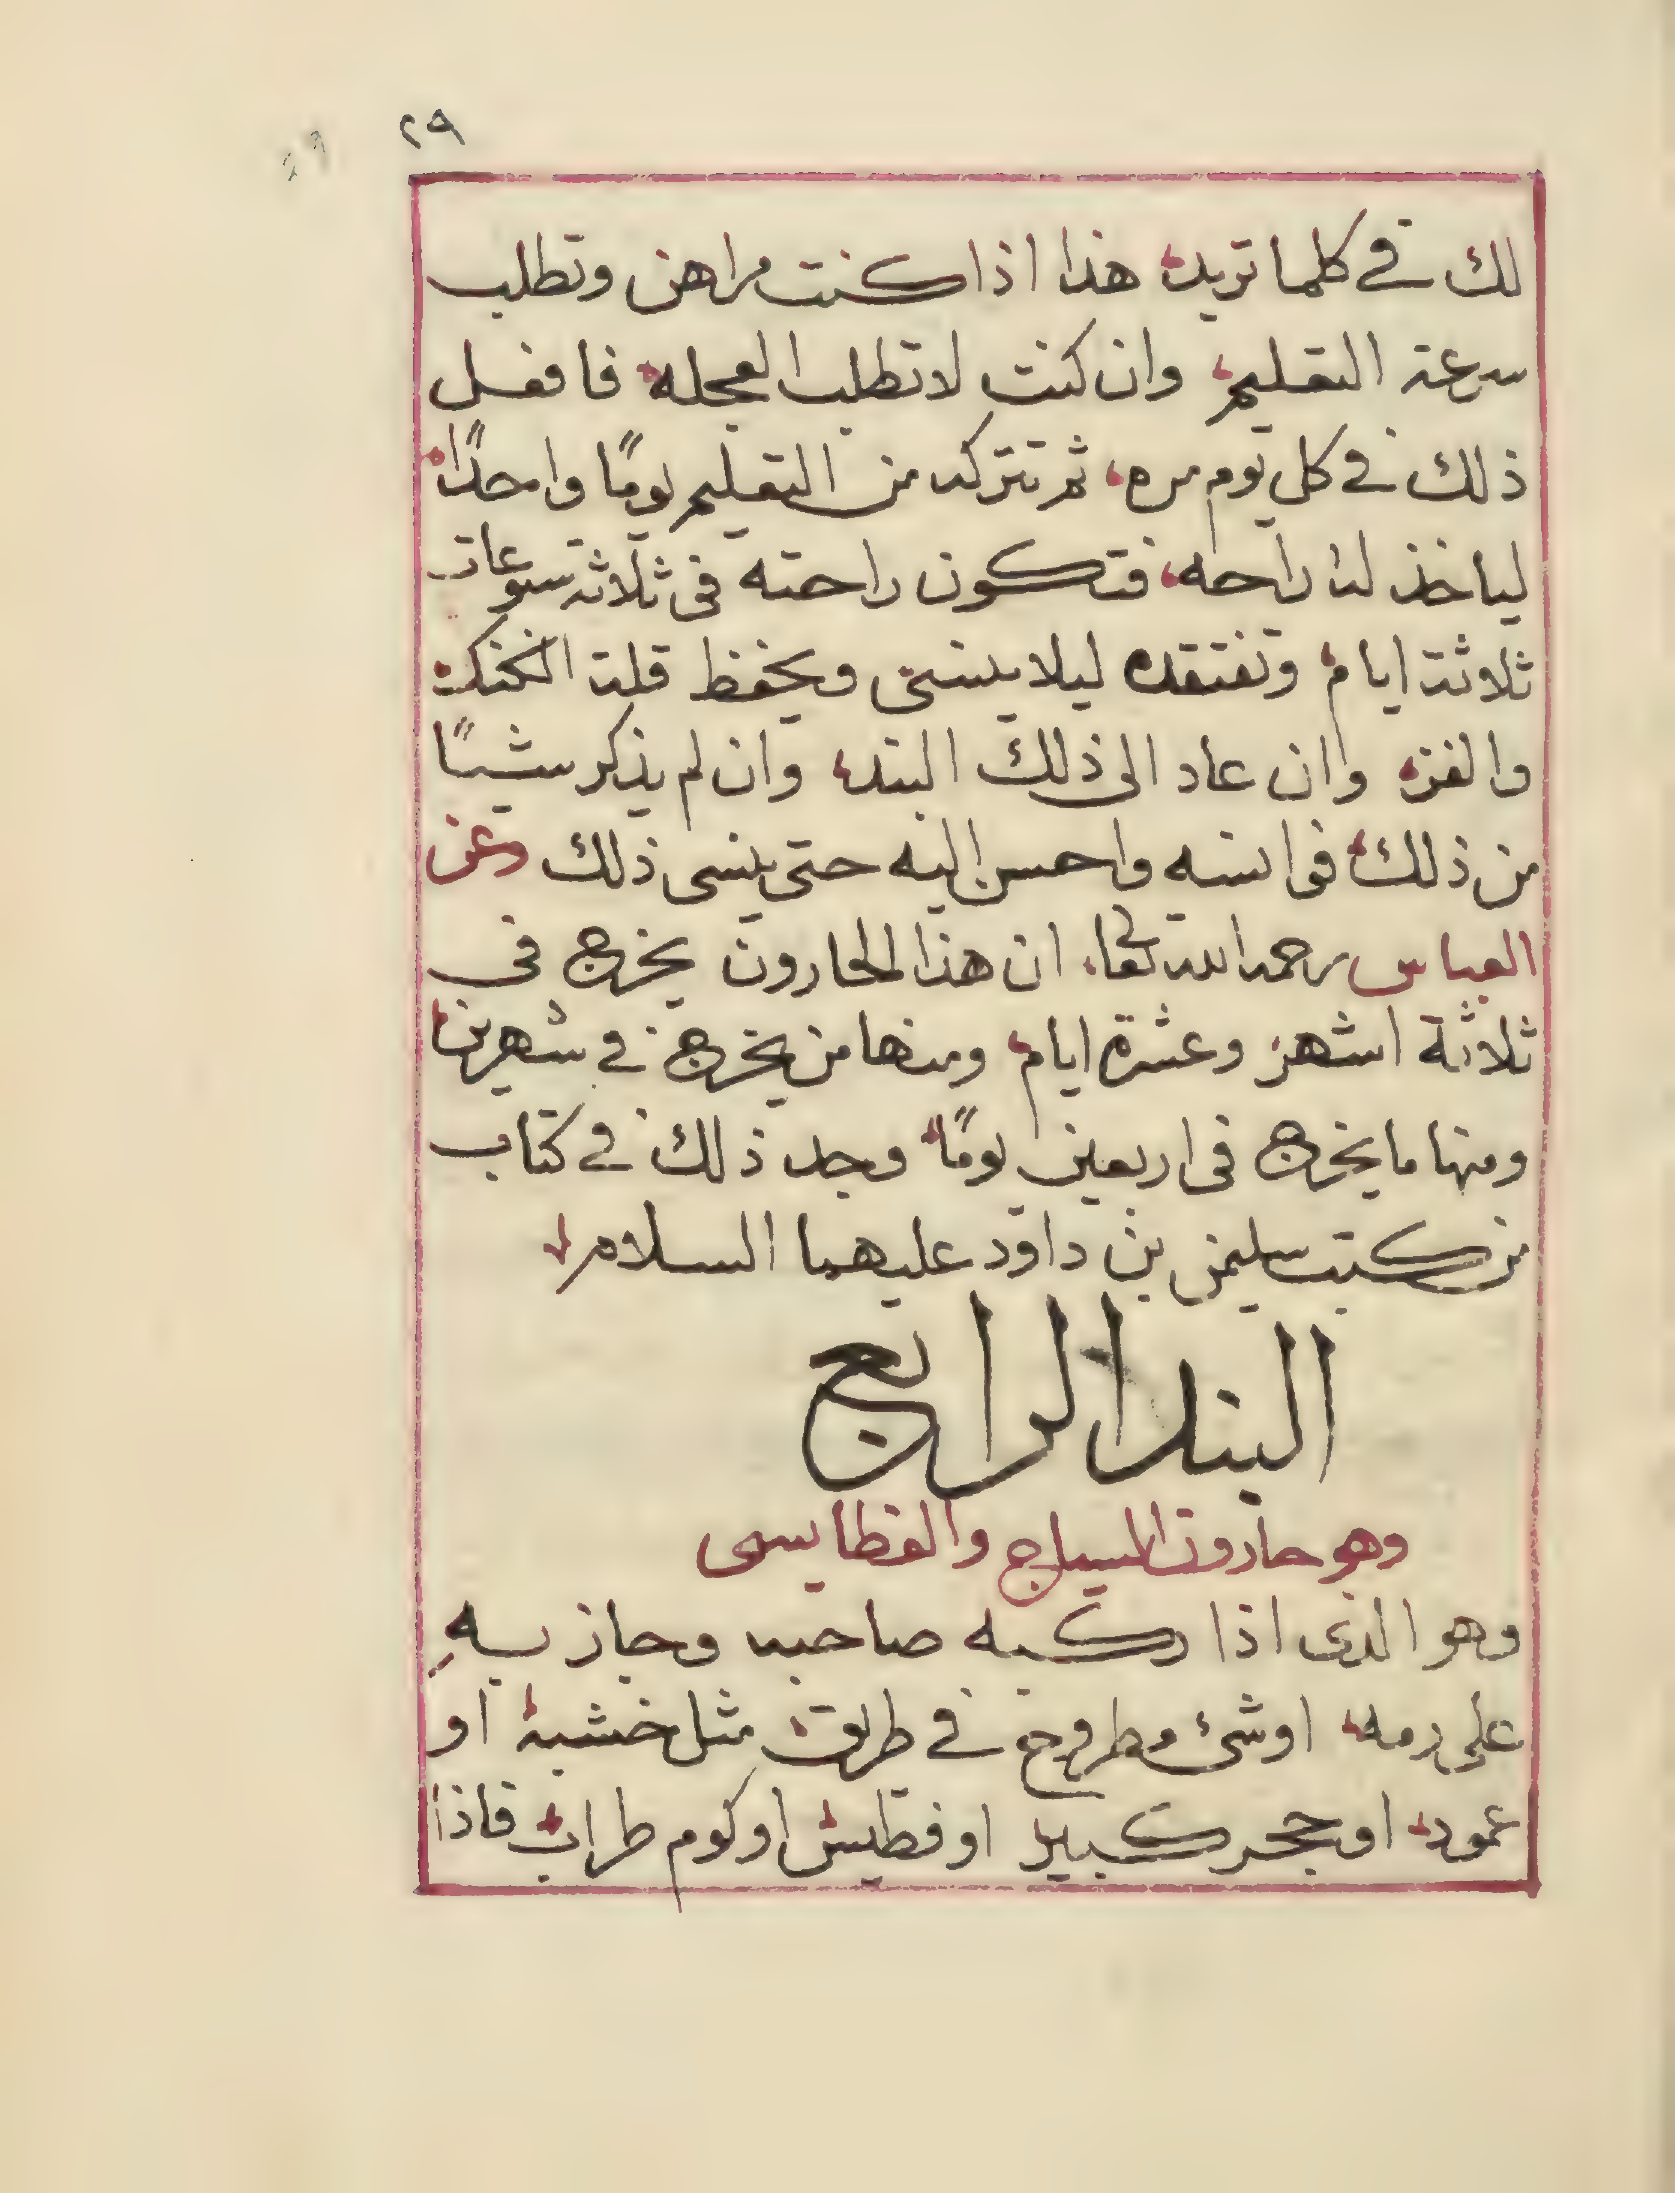 ٢٩
لك في كلما تريد هذا اذا كنت مراهن وتطلب
سرعة التعليم وان كنت لا تطلب العجله فافعل
ذلك في كل يوم مره ثم تتركه من التعليم يومًا واحدًا
لياخذ له راحه فتكون راحته في ثلاثة سبوعات
ثلاثة ايام وتفتقده ليلا ينسى ويحفظ قلة
وان عاد الى ذلك البند وان لم يذكر شيئًا
من ذلك فوانسه واحسن اليه حتى ينسى ذلك وعن
العباس رحمه الله تعا ان هذا الحارون يخرج في
ثلاثة اشهر وعشرة ايام ومنها من يخرج في شهرين
ومنها ما يخرج في اربعين يومًا وجد ذلك في كتاب
من كتب سليمن بن داود عليهما السلام
البند الرابع
وهو حارون
وهو الذي اذا ركبه صاحبه وجاز به
على رمه او شئ مطروح في طريق مثل خشبة او
عمود او حجر كبير او فطيس او كوم طراب فاذا